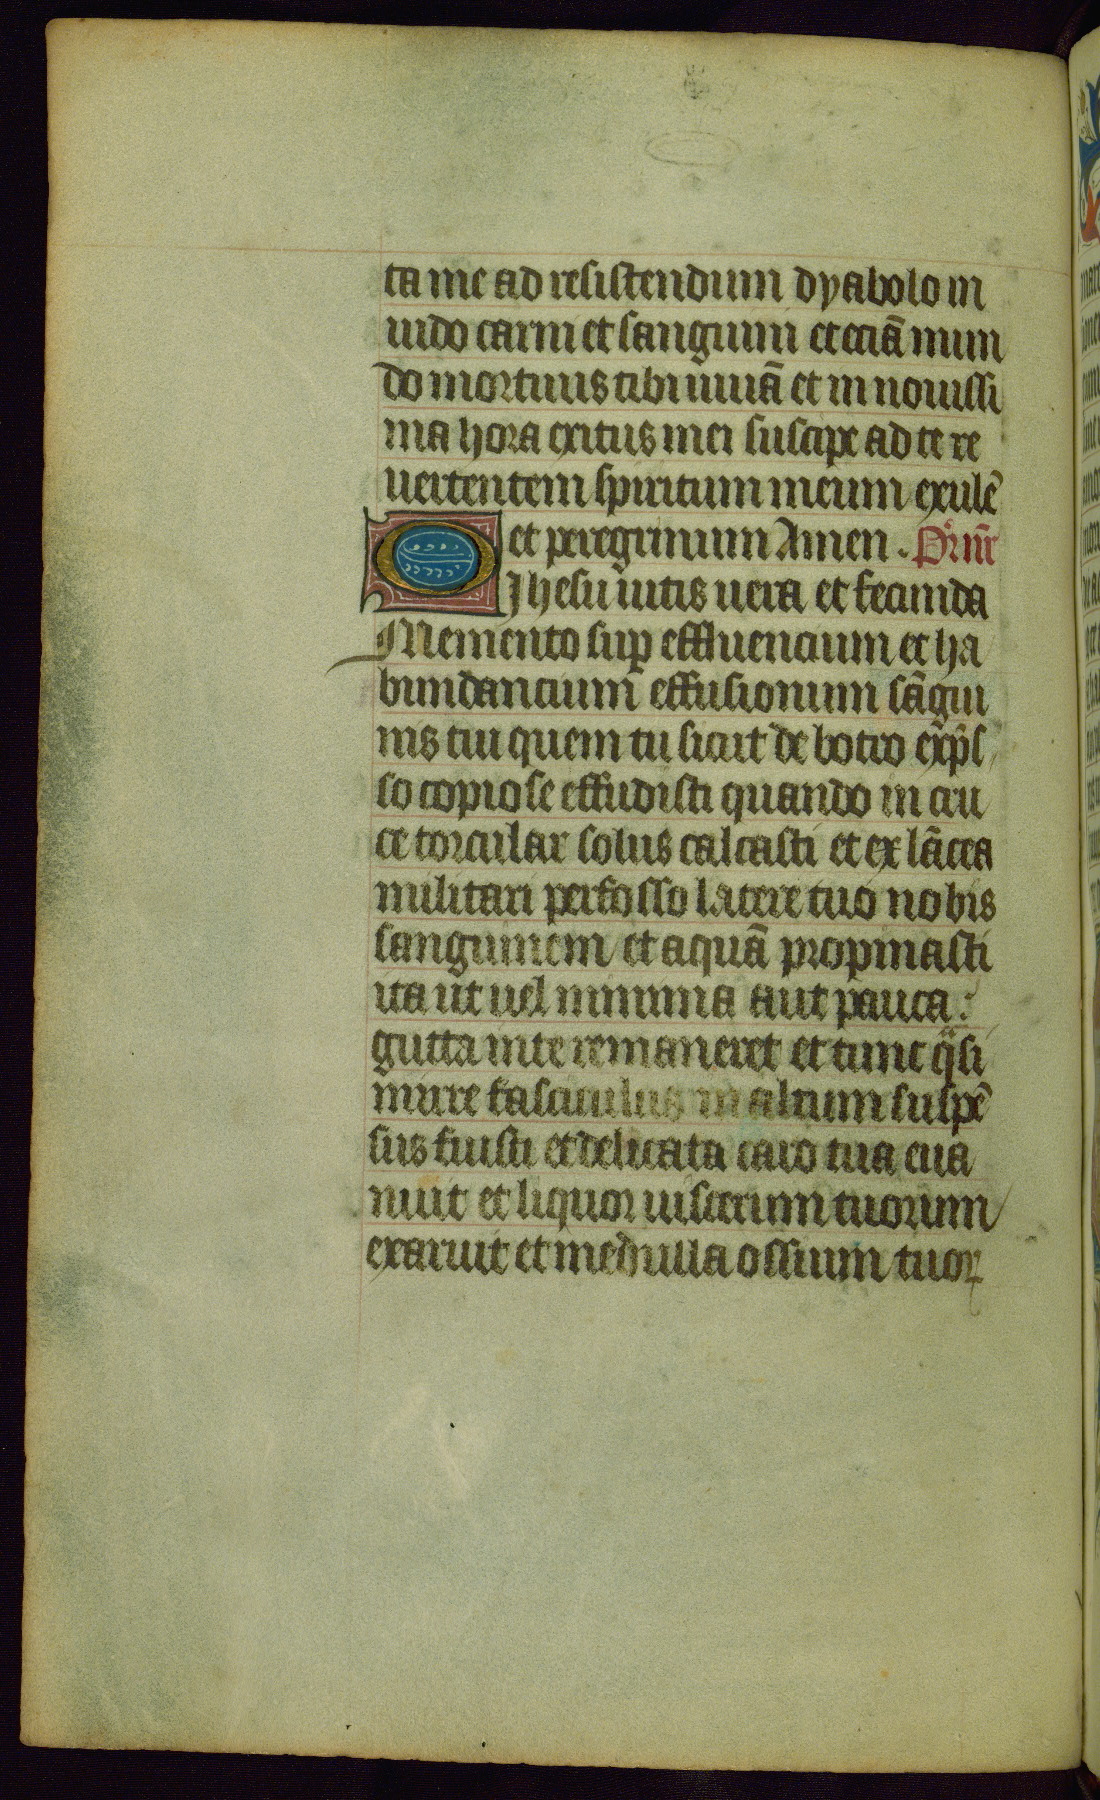 ta me ad resistendum dyabolo in
uido carni et sanguini et eciā mun
do mortuus tibi uiuā et in nouissi
ma hora exitus mei suscipe ad te re
uertentem spiritum meum exulē
et peregrinum Amen . Pr̄ nr̄
O Jhesu uitis uera et fecunda
Memento sup effluencium et ha
bundancium effusionum sāgui
nis tui quem tu sicut de botro exp̄s
so copiose effudisti quando in cru
ce torcular solus calcasti et ex lācea
militari perfosso latere tuo nobis
sanguinem et aquā propinasti
ita ut uel minima aut pauca :
gutta in te remaneret et tunc q̄si
mirre fasciculus in altum suspē
sus fuisti et delicata caro tua eua
nuit et liquor uiscerum tuorum
exaruit et medulla ossium tuoꝝ